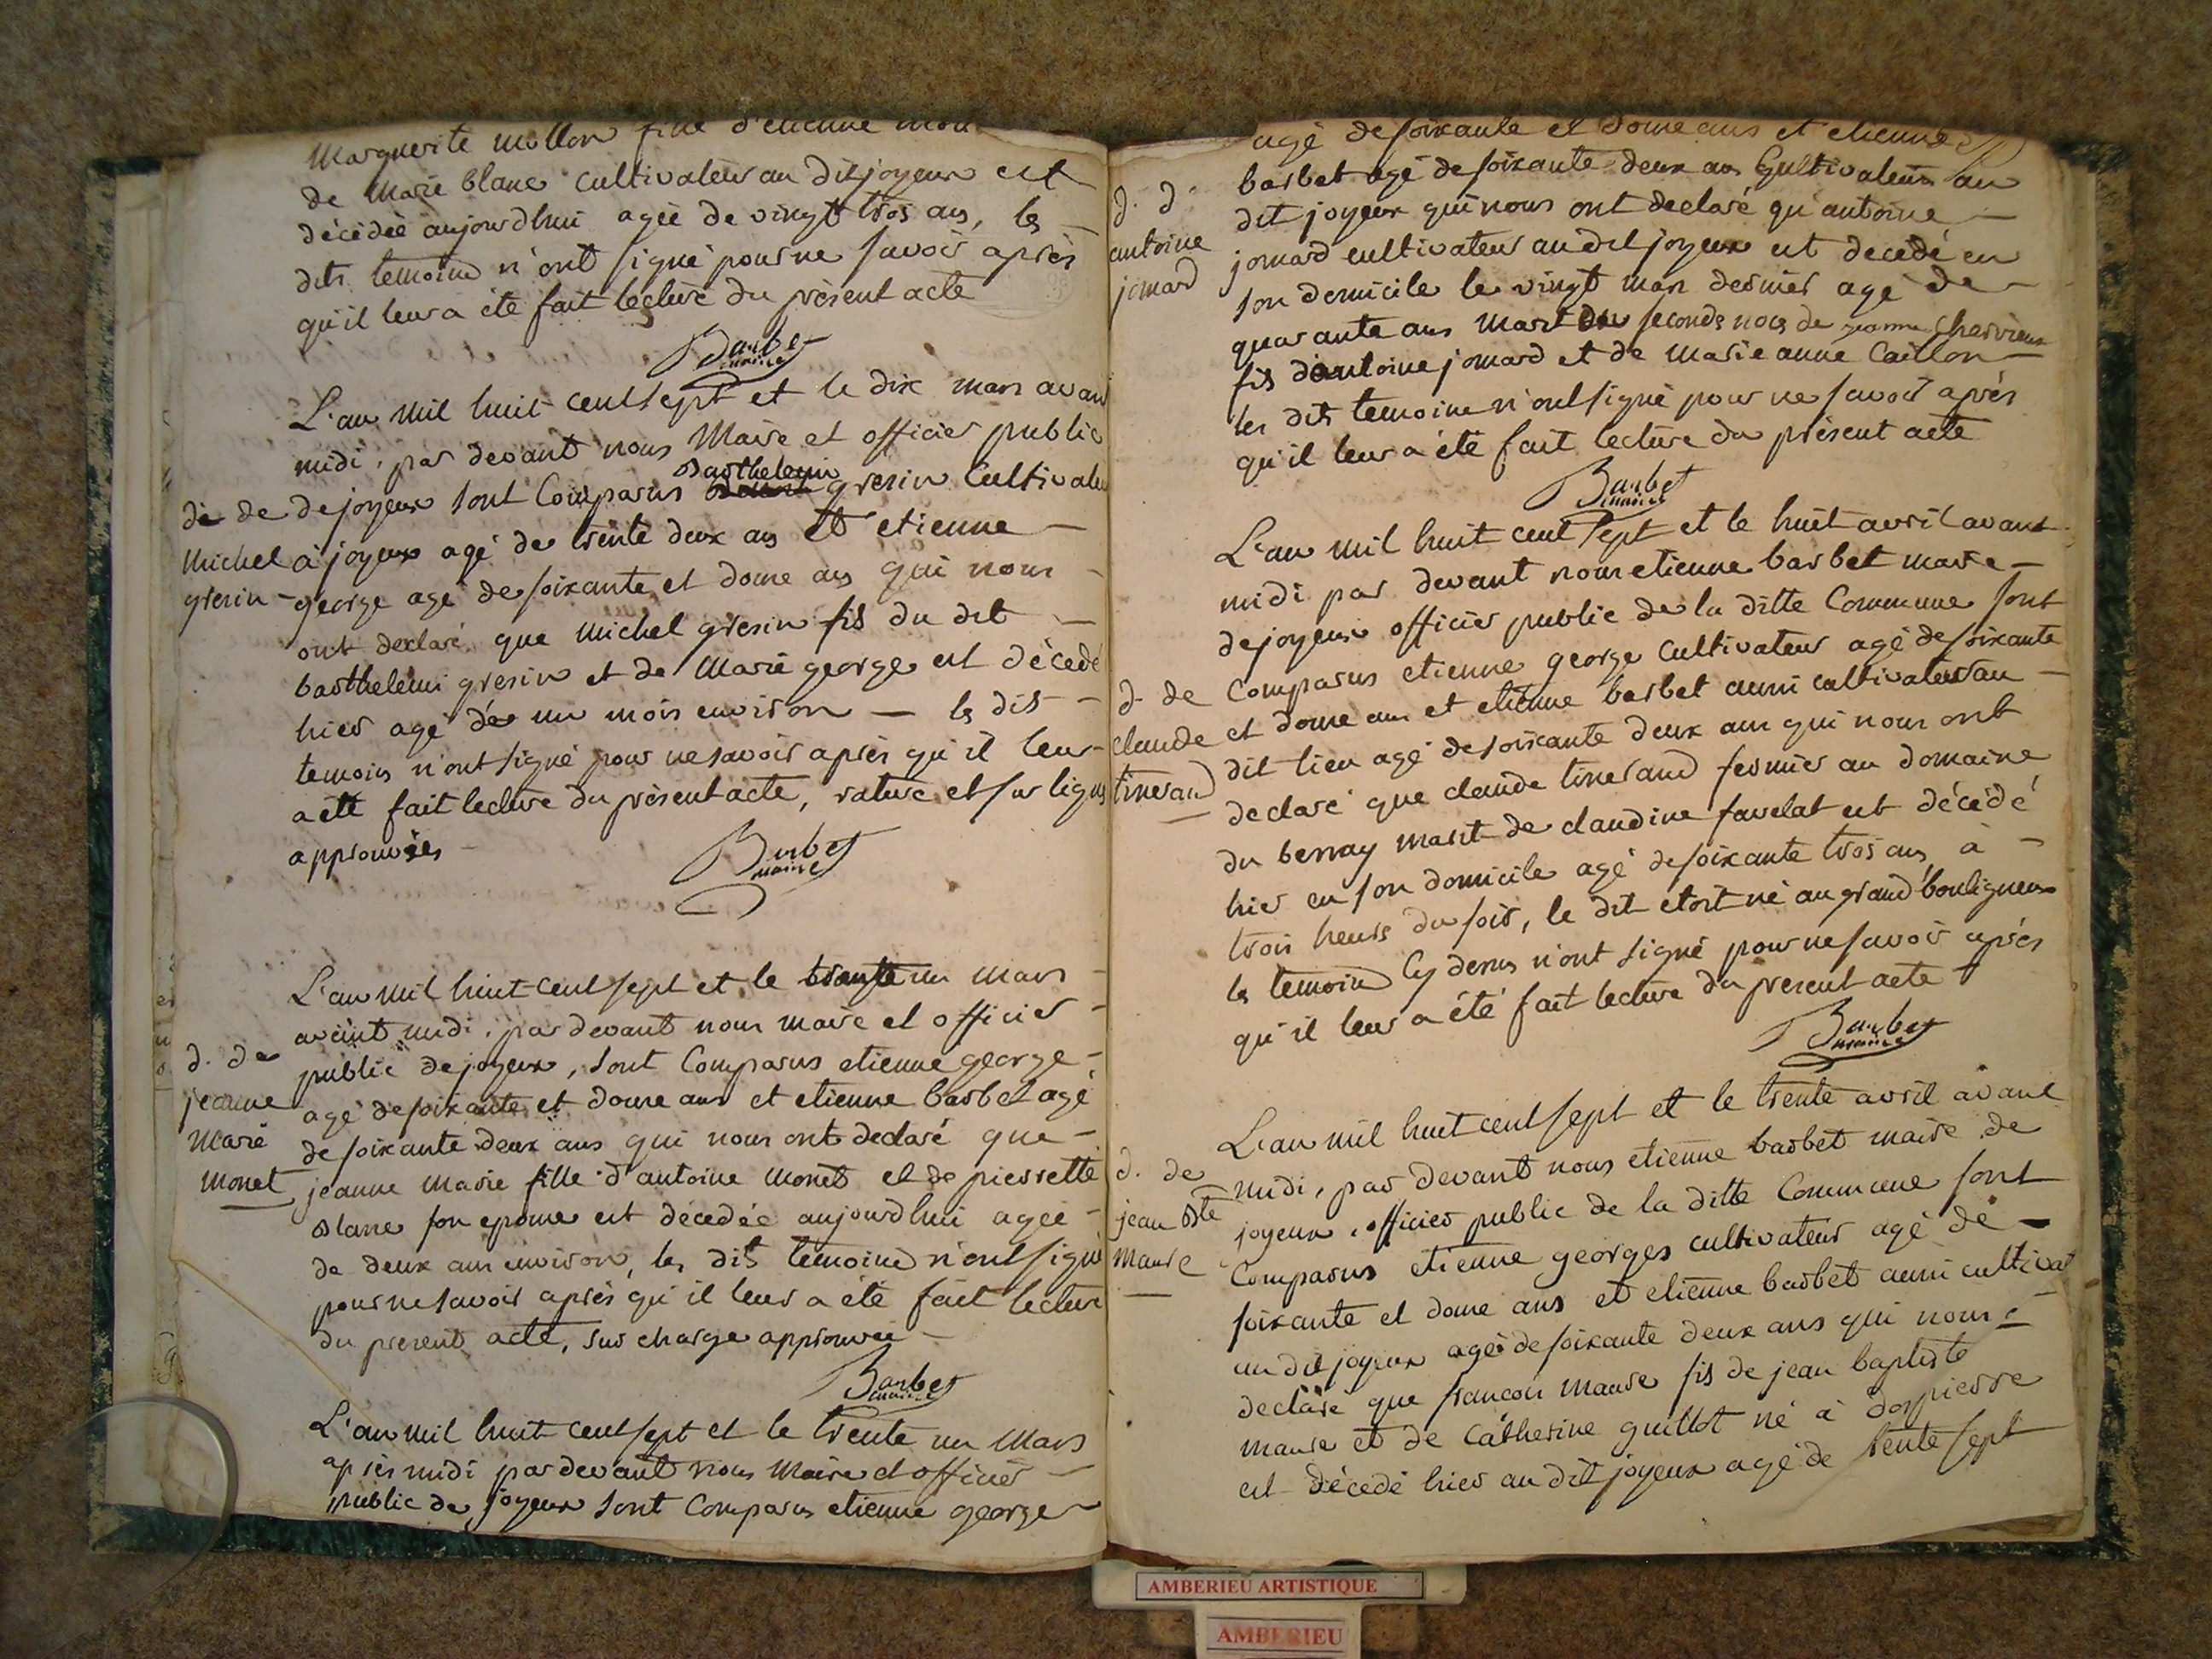 Marguerite mollon fille d'etienne
de Marie blanc cultivateur au dit joyeux est
décédée aujourdhui agée de vingt trois ans, les
dits temoins n'ont signé pour ne savoir après
qu'il leur a été fait lecture du présent acte
Barbet
maire
L'an mil huit cent sept et le dix mars avant
midi, par devant nous Maire et officier public
de joyeux sont Comparus Barthelemi gresin Cultivateur
à joyeux agé de trente deux ans et etienne
george agé de soixante et douze ans qui nous
ont declaré que Michel gresin fils du dit
barthelemi gresin et de Marie george est décedé
hier agé de un mois environ — les dits
temoins n'ont signé pour ne savoir après qu'il leur
a été fait lecture du présent acte, rature et sur ligne
approuvées
de de
Michel
gresin
Barbet
maire
L'an mil huit cent sept et le trente un mars
avant midi, par devant nous maire et officier
public de joyeux, sont Comparus etienne george
agé de soixante et douze ans et etienne barbet agé
de soixante deux ans qui nous ont declaré que
jeanne marie fille d'antoine monet et de pierrette
blanc son epouse est décedée aujourdhui agee
de deux ans environ, les dits temoins n'ont signé
pour ne savoir après qu'il leur a été fait lecture
du present acte, sur charge approuvée
d. de
jeanne
marie
monet
Barbet
maire
L'an mil huit cent sept et le trente un Mars
après midi par devant nous Maire et officier
public de joyeux sont Comparus etienne george
agé de soixante et douze ans et etienne
barbet agé de soixante deux ans Cultivateurs au
dit joyeux qui nous ont declaré qu'antoine
jomard cultivateur au dit joyeux est decedé en
son domicile le vingt mars dernier agé de
quarante ans Marit en seconds noces de jeanne Chervieux
fils d'antoine jomard et de Marie anne Caillon
les dits temoins n'ont signé pour ne savoir après
qu'il leur a été fait lecture du présent acte
d. d.
antoine
jomard
Barbet
maire
L'an mil huit cent sept et le huit avril avant
midi par devant nous etienne barbet maire
de joyeux officier public de la ditte Commune sont
Comparus etienne george Cultivateur agé de soixante
et douze ans et etienne barbet aussi cultivateur au
dit lieu agé de soixante deux ans qui nous ont
declaré que claude tinerand fermier au domaine
du berray marit de claudine favelat est décédé
hier en son domicile agé de soixante trois ans à
trois heurs du soir, le dit etoit né au grand bouligneux
les temoins Cy dessus n'ont signé pour ne savoir après
qu'il leur a été fait lecture du present acte
d. de
claude
tinerand
Barbet
maire
L'an mil huit cent sept et le trente avril avant
midi, par devant nous etienne barbet maire de
joyeux, officier public de la ditte Commune sont
Comparus etienne georges cultivateur agé de
soixante et douze ans et etienne barbet aussi cultivat
au dit joyeux agé de soixante deux ans qui nous
declaré que francois maure fils de jean baptiste
maure et de Catherine guillot né à dompierre
est décedé hier au dit joyeux agé de trente sept
d. de
jean Bte
maure
AMBERIEU ARTISTIQUE
AMBERIEU